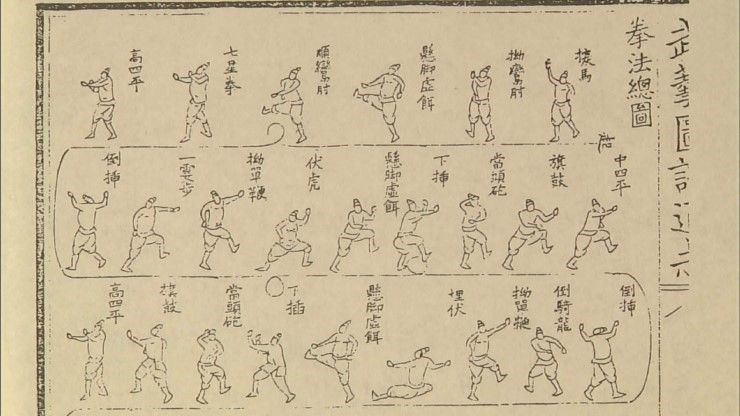 武藝圖譜通志
拳法總圖
探馬
拗鸞肘
懸脚虛餌
順鸞肘
七星拳
高四平
倒揷
一霎步
拗單鞭
伏虎
懸脚虛餌
下揷
當頭砲
旗鼓
中四平
倒揷
倒騎龍
拗單鞭
埋伏
懸脚虛餌
下揷
當頭砲
旗鼓
高四平